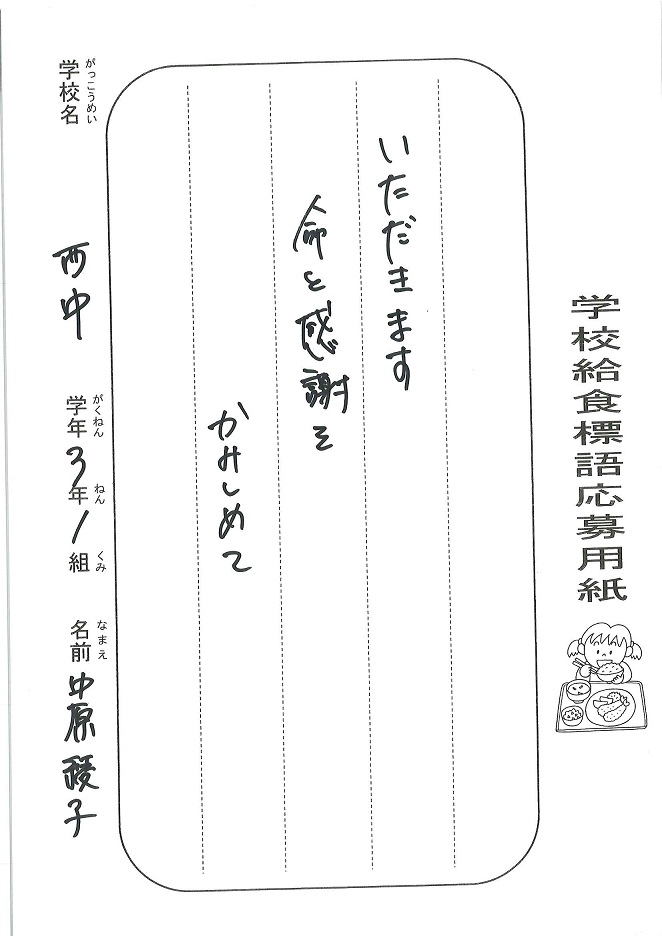 学校給食標語応募用紙
いただきます
命と感謝を
かみしめて
学校名 がっこうめい 西中 学年 がくねん 3年 ねん 1組 くみ 名前 なまえ 中原 稜子